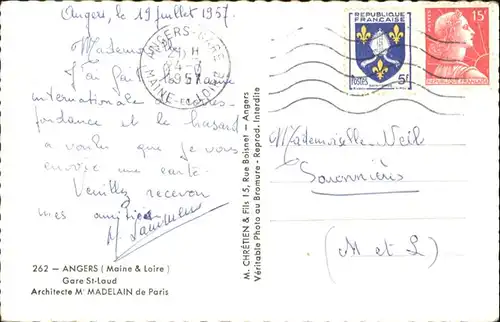 Angers, le 19 juillet 1957.
Mademoiselle
J'ai fait
internationale de corres-
pondance et le hasard
a voulu que je vous
envoie une carte.
Veuillez recevoir
mes amitiés
262 — ANGERS (Maine & Loire)
Gare St-Laud
Architecte Mr MADELAIN de Paris
M. CHRÉTIEN & Fils 15, Rue Boisnet - Angers
Véritable Photo au Bromure - Reprod. Interdite
ANGERS-GARE
MAINE-ET-LOIRE
REPUBLIQUE
FRANÇAISE
POSTES 5f
15f
REPUBLIQUE FRANÇAISE
Mademoiselle Neil
Savonnières
(M et L)